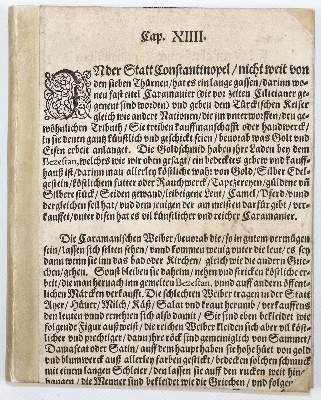 Cap. XIIII.
IN der Statt Constantinopel / nicht weit von
den sieben Thürnen / hat es ein lange gassen / darinn wo-
nen fast eitel Caramanier (die vor zeiten Cilicianer ge-
genent sind worden) und geben dem Türckischen Keiser
gleich wie andere Nationen / die jm unterworffen / den ge-
wöhnlichen Tributh / Sie treiben kauffmanschafft oder handwerck /
in je denen gantz künstlich und geschickt seien / bevorab was Golt und
Eisen arbeit anlanget. Die Goldschmid haben jhre Laden bey dem
Bezestan, welchs wie wir oben gesagt / ein bedecktes geben und kauff-
hauß ist / darinn man allerley köstliche wahr / von Gold / Silber Edel-
gestein / köstlichem futter oder Rauchwerck / Tapezereyen / güldene uñ
Silbere stück / Seiden gewand / leibeigene Leut / Camel / Pferd / vund
der gleichen feil hat / und dem jenigen der am meisten darfür gibt / ver-
kauffet / unter disen hat es vil künstlicher und reicher Caramanier.
Die Caramanischen Weiber / bevorab die / so in gutem vermügen
sein / lassen sich selten sehen / vund kommen wenig unter die leut / es sey
dann wenn sie inn das bad oder Kirchen / gleich wie die andern Grie-
chen / gehen. Sonst bleiben sie daheim / nehen und stricken köstliche er-
beit / die man hernach inn gemelten Bezestan, vund auff andern öffent-
lichen Märckten verkaufft. Die schlechten Weiber tragen in der Statt
Ayer / Hüner / Milch / Käß / Salat und kraut herumb / verkauffens
den leuten vund ernehren sich also damit / Sie sind eben bekleidet wie
folgende Figur außweist / die reichen Weiber kleiden sich aber vil köst-
licher und prechtiger / dann jhre röck sind gemeniglich von Sammet /
Damascat oder Satin / auff dem haupt haben sie hohe hüet von gold
und blumwerck auß allerley farben gestickt / bedecken solchen schmuck
mit einem langen Schleier / den lassen sie auff den rucken weit hin-
hangen / die Menner sind bekleidet wie die Griechen / und folger